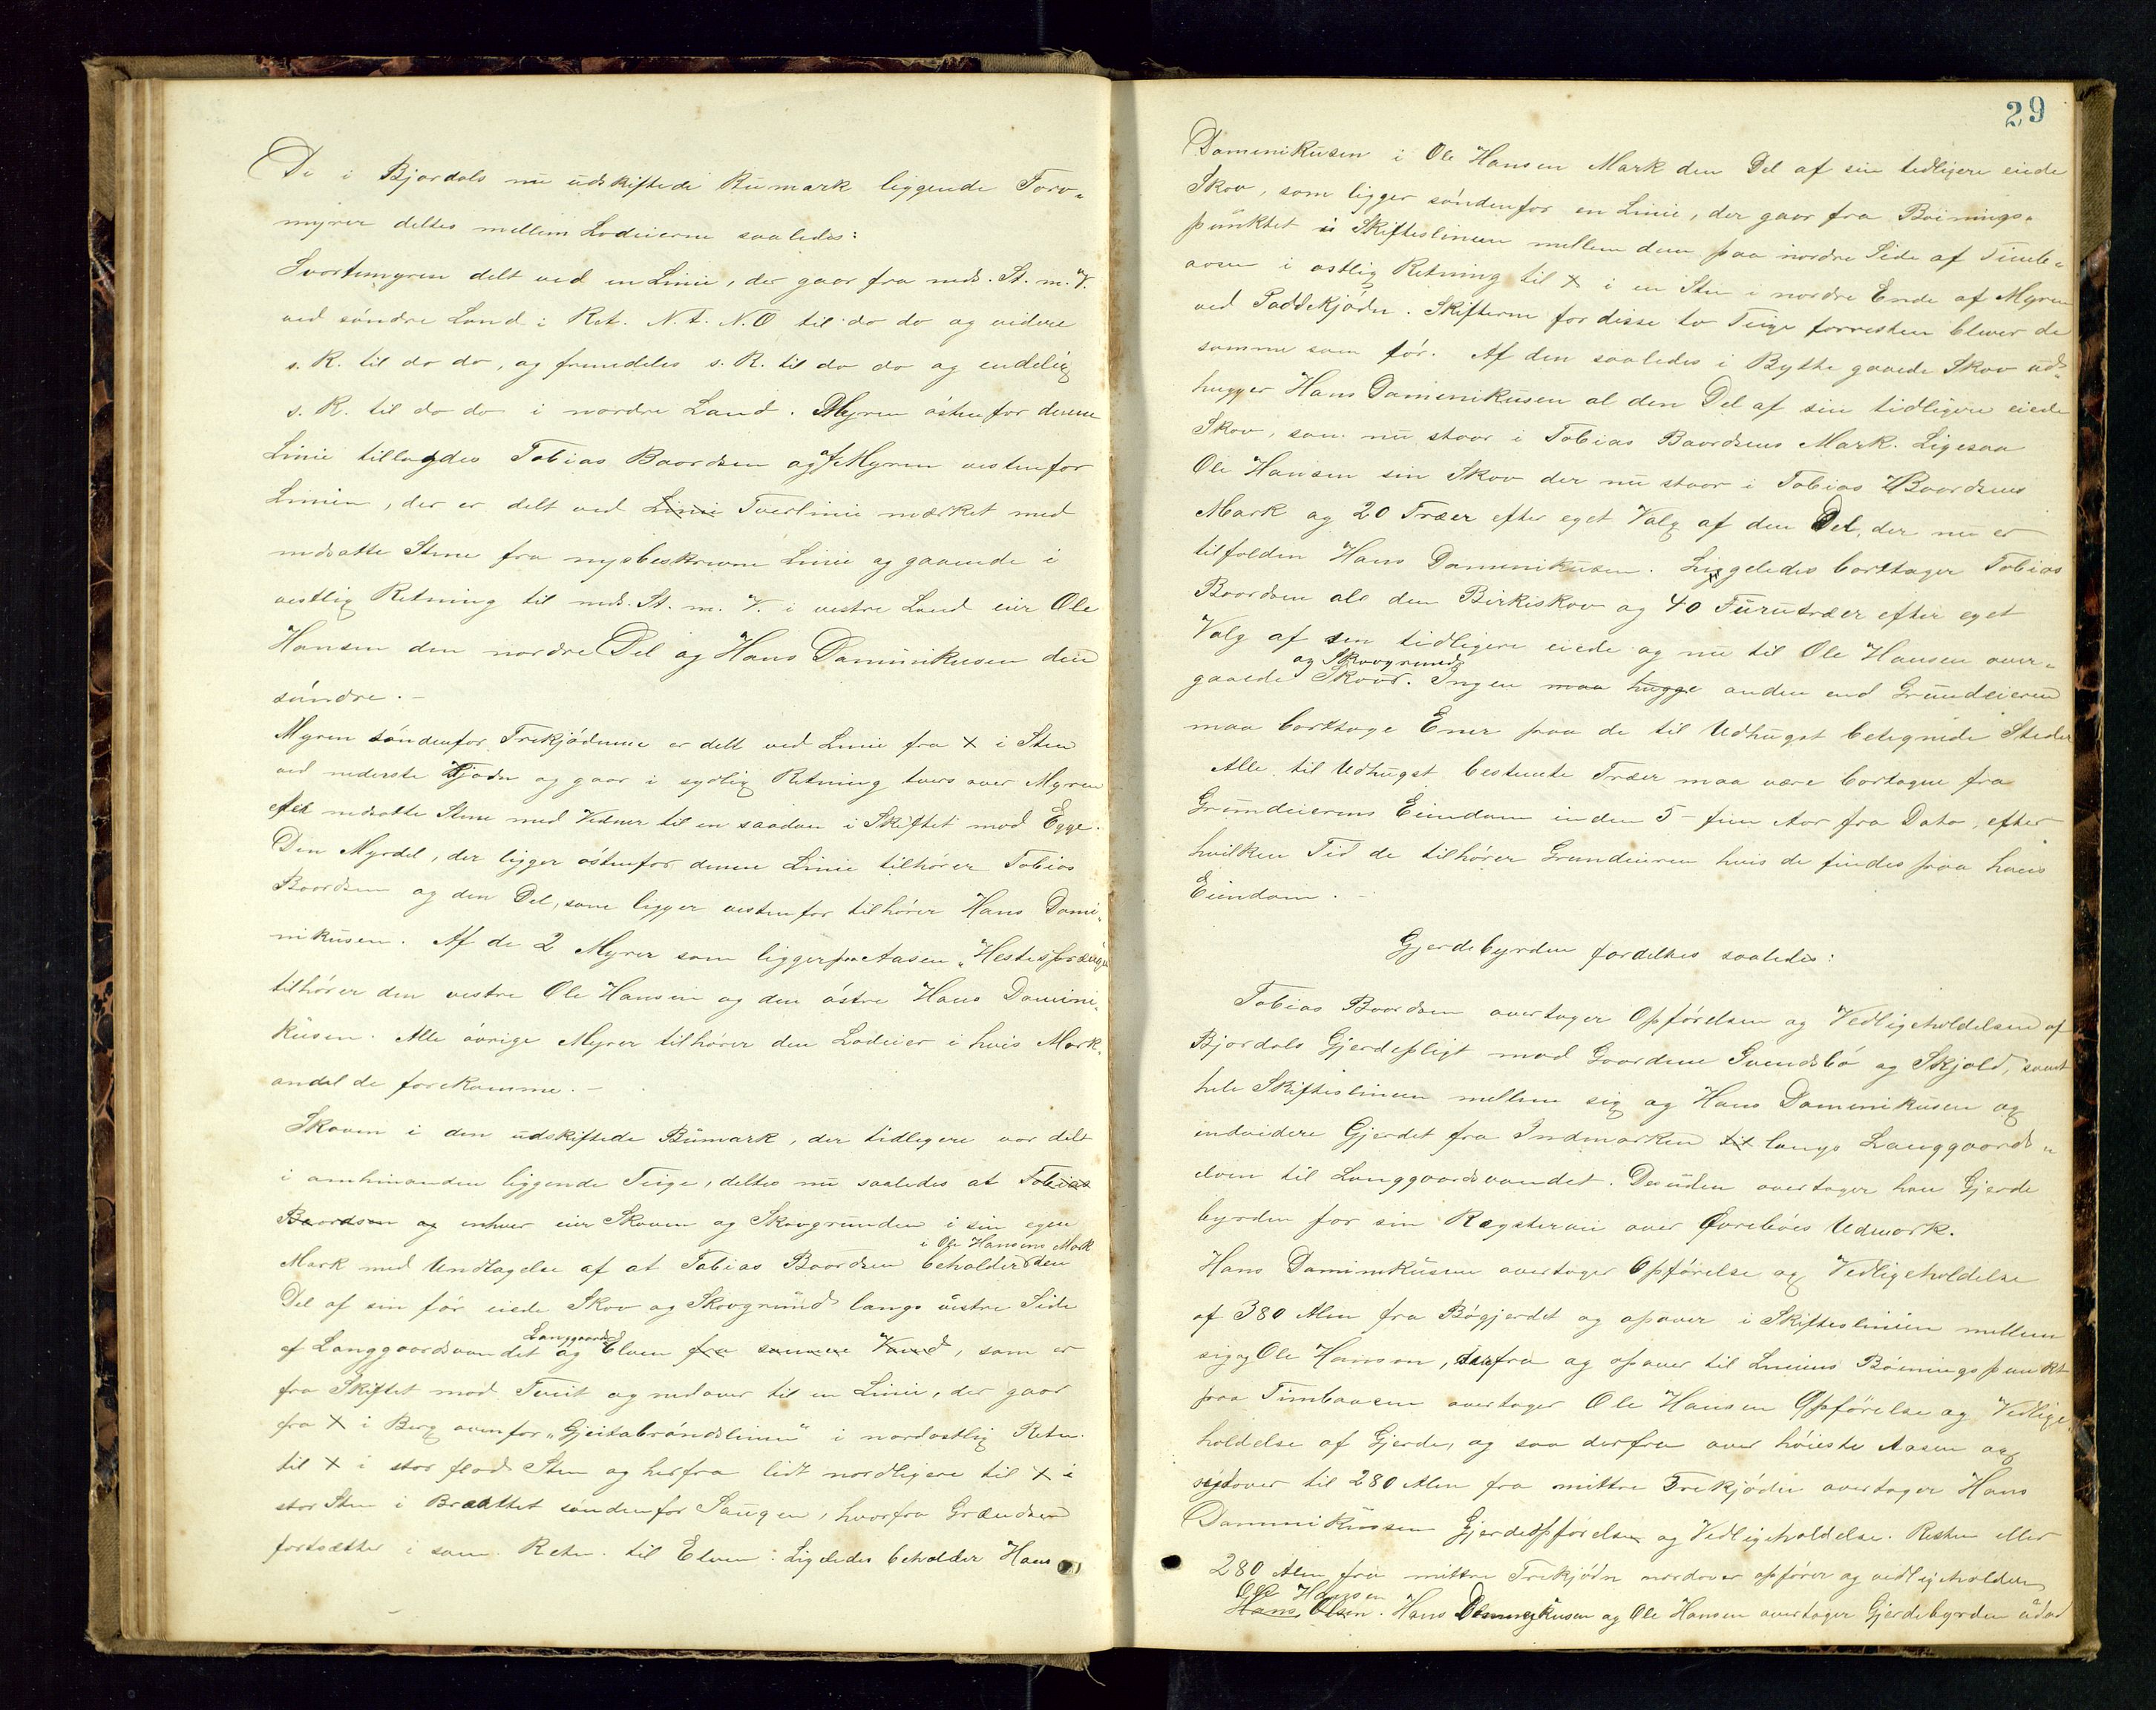 De i Bjordals nu udskiftede Bumark liggende Torv-
myrer deltes mellem Lodeierne saaledes:
Svortemyren delt ved en Linie, der gaar fra neds. St. m. V.
ved søndre Land i Ret. N.t.N.O til do do og videre
s. R. til do do, og fremdeles s. R. til do do og endelig
s. R. til do do i nordre Land. Myren østenfor denne
Linie tillagdes Tobias Baardsen og af Myren vestenfor
Linien, der er delt ved Linie Tverlinie mærket med
nedsatte Stene fra nysbeskrevne Linie og gaaende i
vestlig Retning til neds. St. m. V. i vestre Land eier Ole
Hansen den nordre Del og Hans Daminikusen den
søndre.-
Myren søndenfor Trekjødnene er delt ved Linie fra X i Sten
ved nederste Tjødn og gaar i sydlig Retning tvers over Myren
efter nedsatte Stene med Vidner til en saadan i Skiftet mod Egge.
Den Myrdel, der ligger østenfor denne Linie tilhører Tobias
Baardsen og den Del, som ligger vestenfor tilhører Hans Domi-
nikusen. Af de 2 Myrer som ligger paa Aasen "Hestesprænget"
tilhører den vestre Ole Hansen og den østre Hans Domini-
kusen. Alle øvrige Myrer tilhører den Lodeier i hvis Mark-
andel de forekomme.-
Skoven i den udskiftede Bumark, der tidligere var delt
i omhinanden liggende Teige, deltes nu saaledes at Tobias
Baardsen og enhver eier Skoven og Skovgrunden i sin egen
Mark med Undtagelse af at Tobias Baardsen beholder i Ole Hansens Mark den
Del af sin før eiede Skov og Skovgrund langs østre Side
af Langgaardsvandet og Langgaards Elven fra samme Vand, som er
fra Skiftet mod Tveit og nedover til en Linie, der gaar
fra X i Berg ovenfor "Gjeitabrøndslinien" i nordostlig Retn.
til X i stor flad Sten og herfra lidt nordligere til X i
stor Sten i Brættet søndenfor Saugen, hvorfra Grændsen
fortsætter i sam. Retn. til Elven. Ligeledes beholder Hans
29
Domenikusen i Ole Hansen Mark den Del af sin tidligere eiede
Skov, som ligger søndenfor en Linie, der gaar fra Bøinings-
punktet i Skifteslinien mellem dem paa nordre Side af Timb-
aasen i ostlig Retning til X i en Sten i nordre Ende af Myren
ved Paddekjødn. Skifterne for disse to Teige forresten bliver de
samme som før. Af den saaledes i Bytte gaaede Skov ud-
hugger Hans Domenikusen al den Del af sin tidligere eiede
Skov, som nu staar i Tobias Baardsens Mark. Ligesaa
Ole Hansen sin Skov der nu staar i Tobias Baardsens
Mark og 20 Træer efter eget Valg af den Del, der nu er
tilfalden Hans Domenikusen. Liggeledes borttager Tobias
Baardsen als den Birkiskov og 40 Furutræer efter eget
Valg af sin tidligere eiede og nu til Ole Hansen over-
gaaede Skov og Skovgrund. Ingen maa hugge anden end Grundeieren
maa borttage Ener paa de til Udhugst betegnede Steder
Alle til Udhugst bestemte Træer maa være bortagne fra
Grundeierens Eiendom inden 5 - fem Aar fra Dato, efter
hvilken Tid de tilhører Grundeieren hvis de findes paa hans
Eiendom.-
Gjerdebyrden fordeltes saaledes:
Tobias Baardsen overtager Opførelsen og Vedligeholdelsen af
Bjordals Gjerdepligt mod Gaardene Svendsbø og Skjold, samt
hele Skifteslinien mellem sig og Hans Domenikusen og
endvidere Gjerdet fra Indmarken til langs Langgaards-
elven til Langgaardsvandet. Desuden overtager han Gjerde
byrden for sin Rægstervei over Øvrebøes Udmark.
Hans Dominikusen overtager Opførelse og Vedligeholdelse
af 380 Alen fra Bøgjerdet og opover i Skifteslinien mellem
sig og Ole Hansen, derfra og opover til Liniens Bøiningspunkt
paa Timbaasen overtager Ole Hansen Opførelse og Vedlige-
holdelse af Gjerde, og saa derfra over høieste Aasen og
sydover til 280 Alen fra mittre Trekjødn overtager Hans
Dominikusen Gjerdeopførelsen og Vedligeholdelse. Resten eller
280 Alen fra mittre Trekjødn nordover opfører og vedligeholder
Ole Hansen
Hans Olsen. Hans Domenikusen og Ole Hansen overtager Gjerdebyrden udad